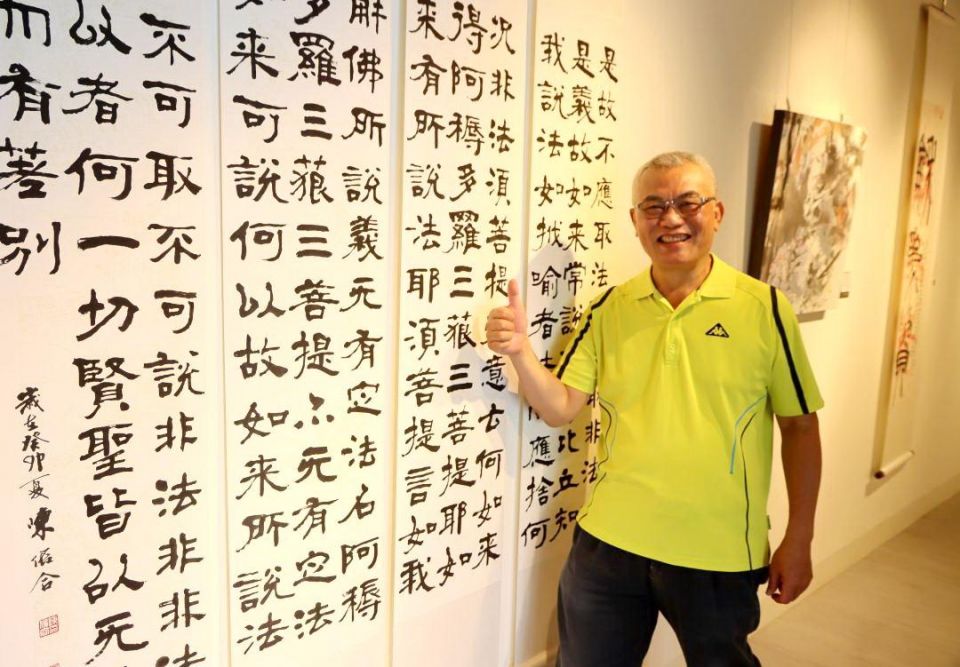 是故不應取法 非法
是義故如來常說 比丘知
我說法如栰喻者 應捨何
況非法須菩提 意云何如來
得阿耨多羅三藐三菩提耶如
來有所說法耶須菩提言如我
解佛所說義无有定法名阿耨
多羅三藐三菩提亦无有定法
如來可說何以故如來所說法
不可取不可說非法非非法
以者何一切賢聖皆以无
而有差別
歲在癸卯夏陳